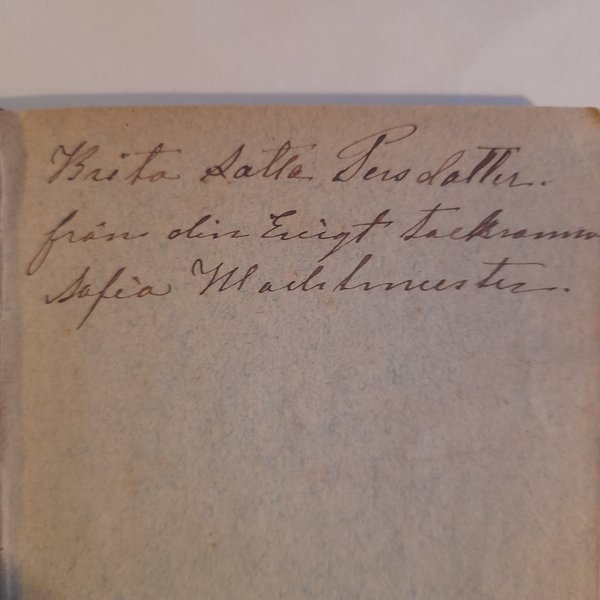 Brita Lotta Persdotter.
från din Evigt tacksamma
Sofia Wachtmeister.